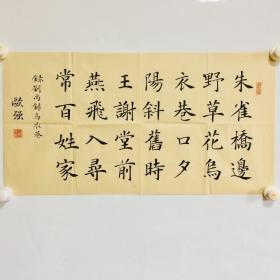 朱雀橋邊
野草花烏
衣巷口夕
陽斜舊時
王謝堂前
燕飛入尋
常百姓家
錄劉禹錫烏衣巷
歐强